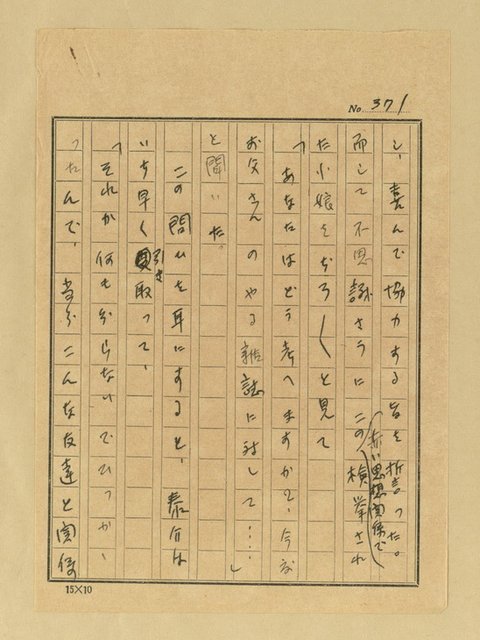 No. 371
し、喜んで協力する旨を誓った。
而して不思議さうにこの(赤い思想関係で)検挙され
た小娘をぢろ〳〵と見て
「あなたはどう考へますかね、今な
お父さんのやる雑誌に対して……」
と聞いた。
この問ひを耳にすると、泰介は
いち早く引き取って、
「それが何も分らないでひつか、
つたんで、当分こんな友達と関係
15×10